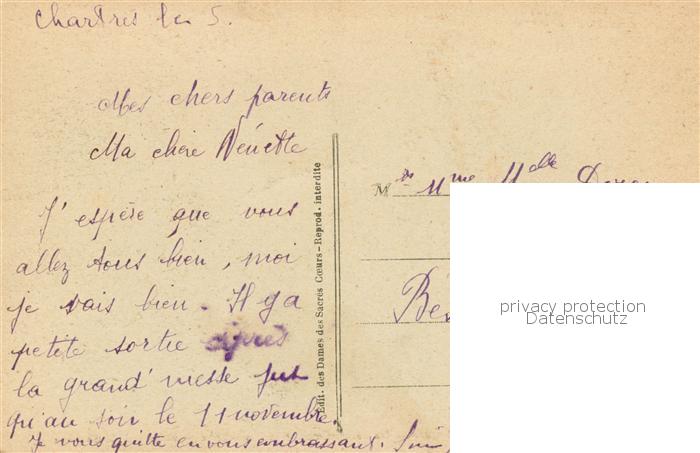 Chartres le 5.
Mes chers parents
Ma chère Nénette
J'espère que vous
allez tous bien, moi
je vais bien. Il y a
petite sortie après
la grand'messe jus
qu'au soir le 11 novembre.
Je vous quitte en vous embrassant.
Edit. des Dames des Sacrés Cœurs - Reprod. interdite
M Mme Melle
privacy protection
Datenschutz